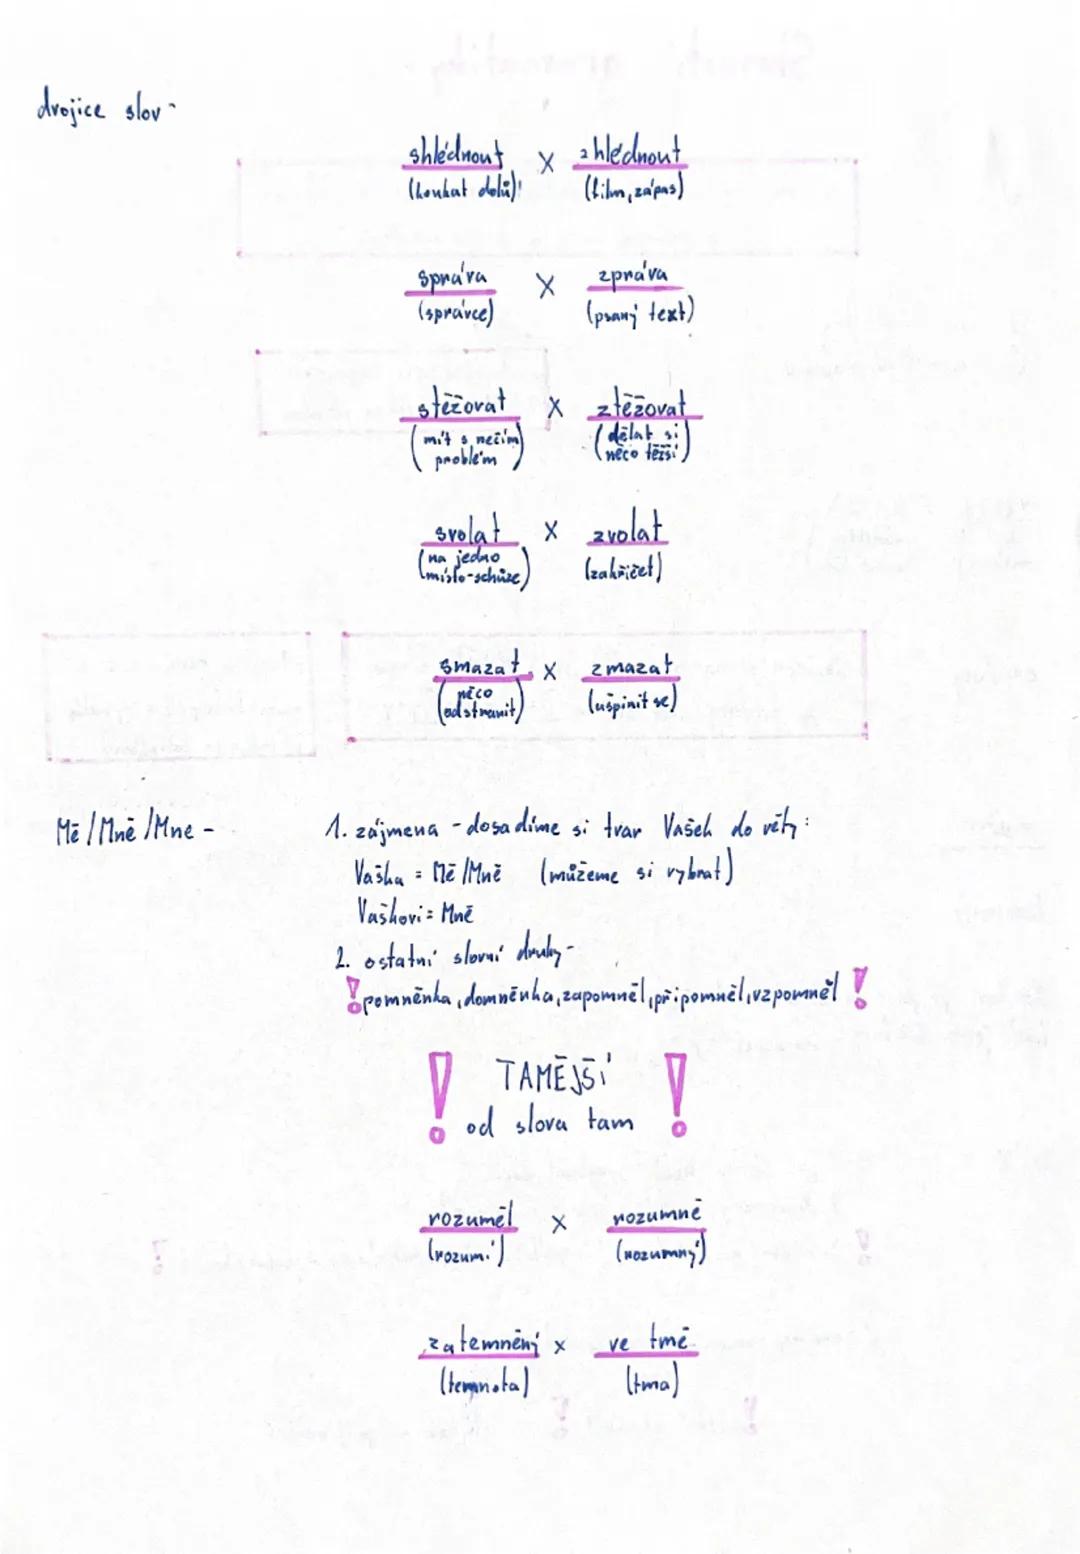 drojice slov -
shlédnout x zhlédnout
(koukat dolů) (film, zápas)
správa x zpráva
(správce) (psaný text)
stěžovat x ztěžovat
(mít s něčím problém) (dělat si něco těžší)
svolat x zvolat
(na jedno místo-schůze) (zakřičet)
smazat x zmazat
(něco odstranit) (ušpinit se)
Mě / Mně / Mne - 1. zájmena - dosadíme si tvar Vašek do věty:
Vaška = Mě / Mně (můžeme si vybrat)
Vaškovi = Mně
2. ostatní slovní druhy -
! pomněnka, domněnka, zapomněl, připomněl, vzpomněl !
! TAMĚJŠÍ !
od slova tam
rozuměl x rozumně
(rozumí) (rozumný)
zatemněný x ve tmě
(temnota) (tma)